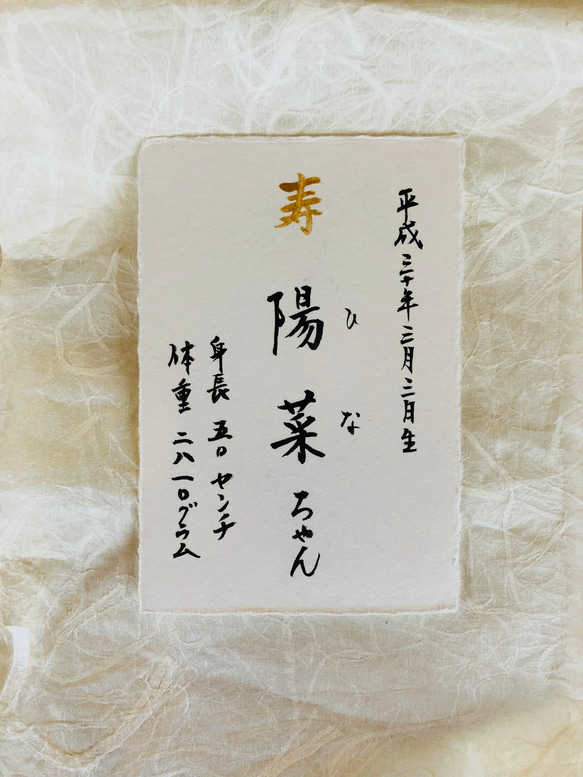 平成三十年三月三日生
寿
陽菜ちゃん
ひな
身長 五〇センチ
体重 二八一〇グラム